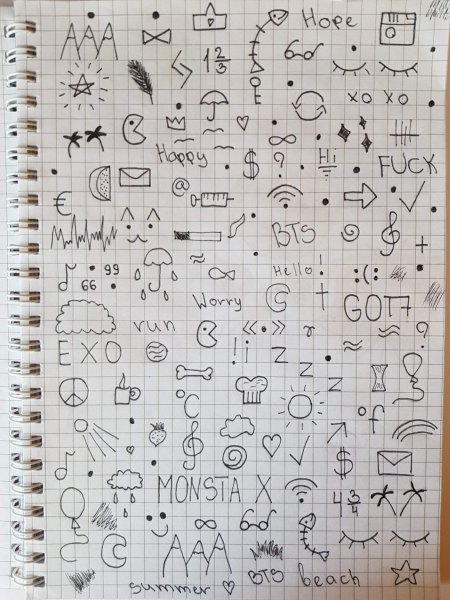 Hope
AAA
1 2/3
XO XO
Happy
$ ?
Hi
FUCK
@
€
BTS
+
Hello!
:(:
99
66
Worry
GOT7
run
« »
r
?
EXO
!i
z
z
z
°C
°f
$
MONSTA X
4 3/4
AAA
BTS
beach
summer